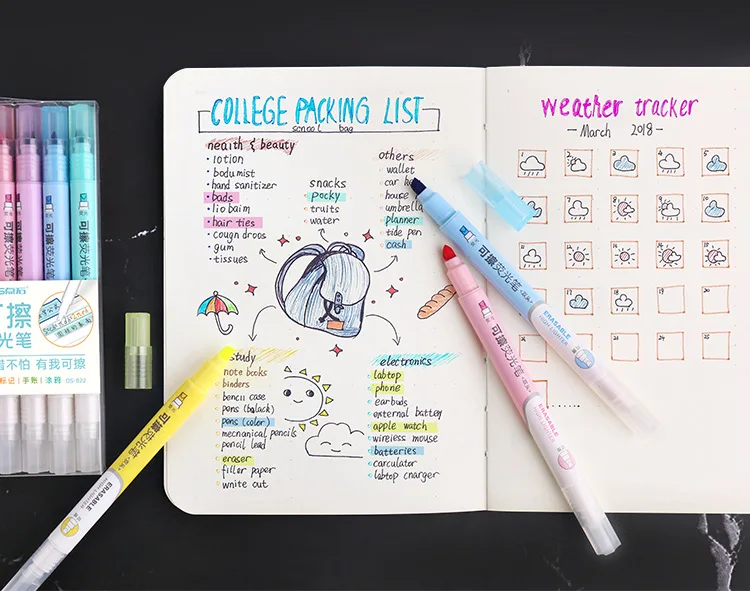 COLLEGE PACKING LIST
school bag
health & beauty
lotion
body mist
hand sanitizer
bads
lip balm
hair ties
cough drops
gum
tissues
snacks
pocky
fruits
water
others
wallet
car
house
umbrella
planner
tide pen
cash
study
note books
binders
pencil case
pens (balack)
pens (color)
mechanical pencils
pencil lead
eraser
filler paper
white out
electronics
labtop
phone
earbuds
external battery
apple watch
wireless mouse
batteries
carculator
labtop charger
weather tracker
- March 2018 -
1 2 3 4 5
可擦荧光笔
ERASABLE
HIGHLIGHTER
可擦荧光笔
ERASABLE
可擦荧光笔
ERASABLE
HIGHLIGHTER
可擦荧光笔
可擦荧光笔
可擦荧光笔
可擦
光笔
不怕 有我可擦
标记 | 手账 | 涂鸦 DS-922